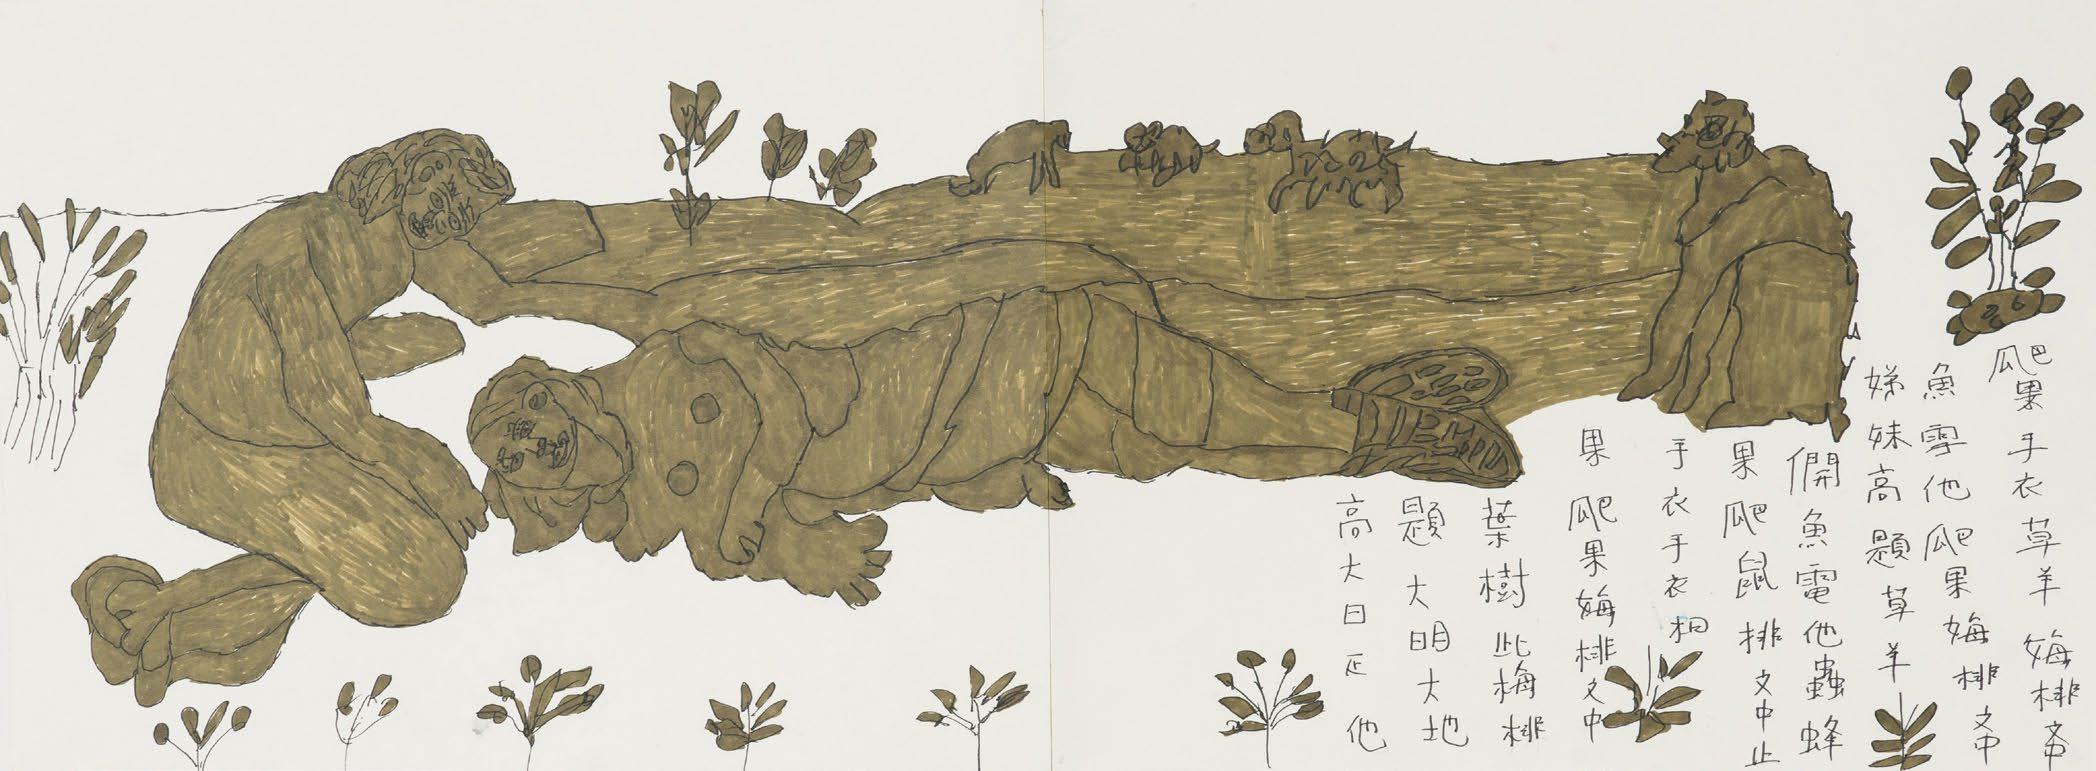 爬果手衣草羊娒棑
魚他爬果娒棑
娣妹高題草羊
魚電他蟲蜂
果爬鼠排文中止
手衣手衣相
果爬果娒棑文中
葉樹此梅棑
題大明大地
高大日正他